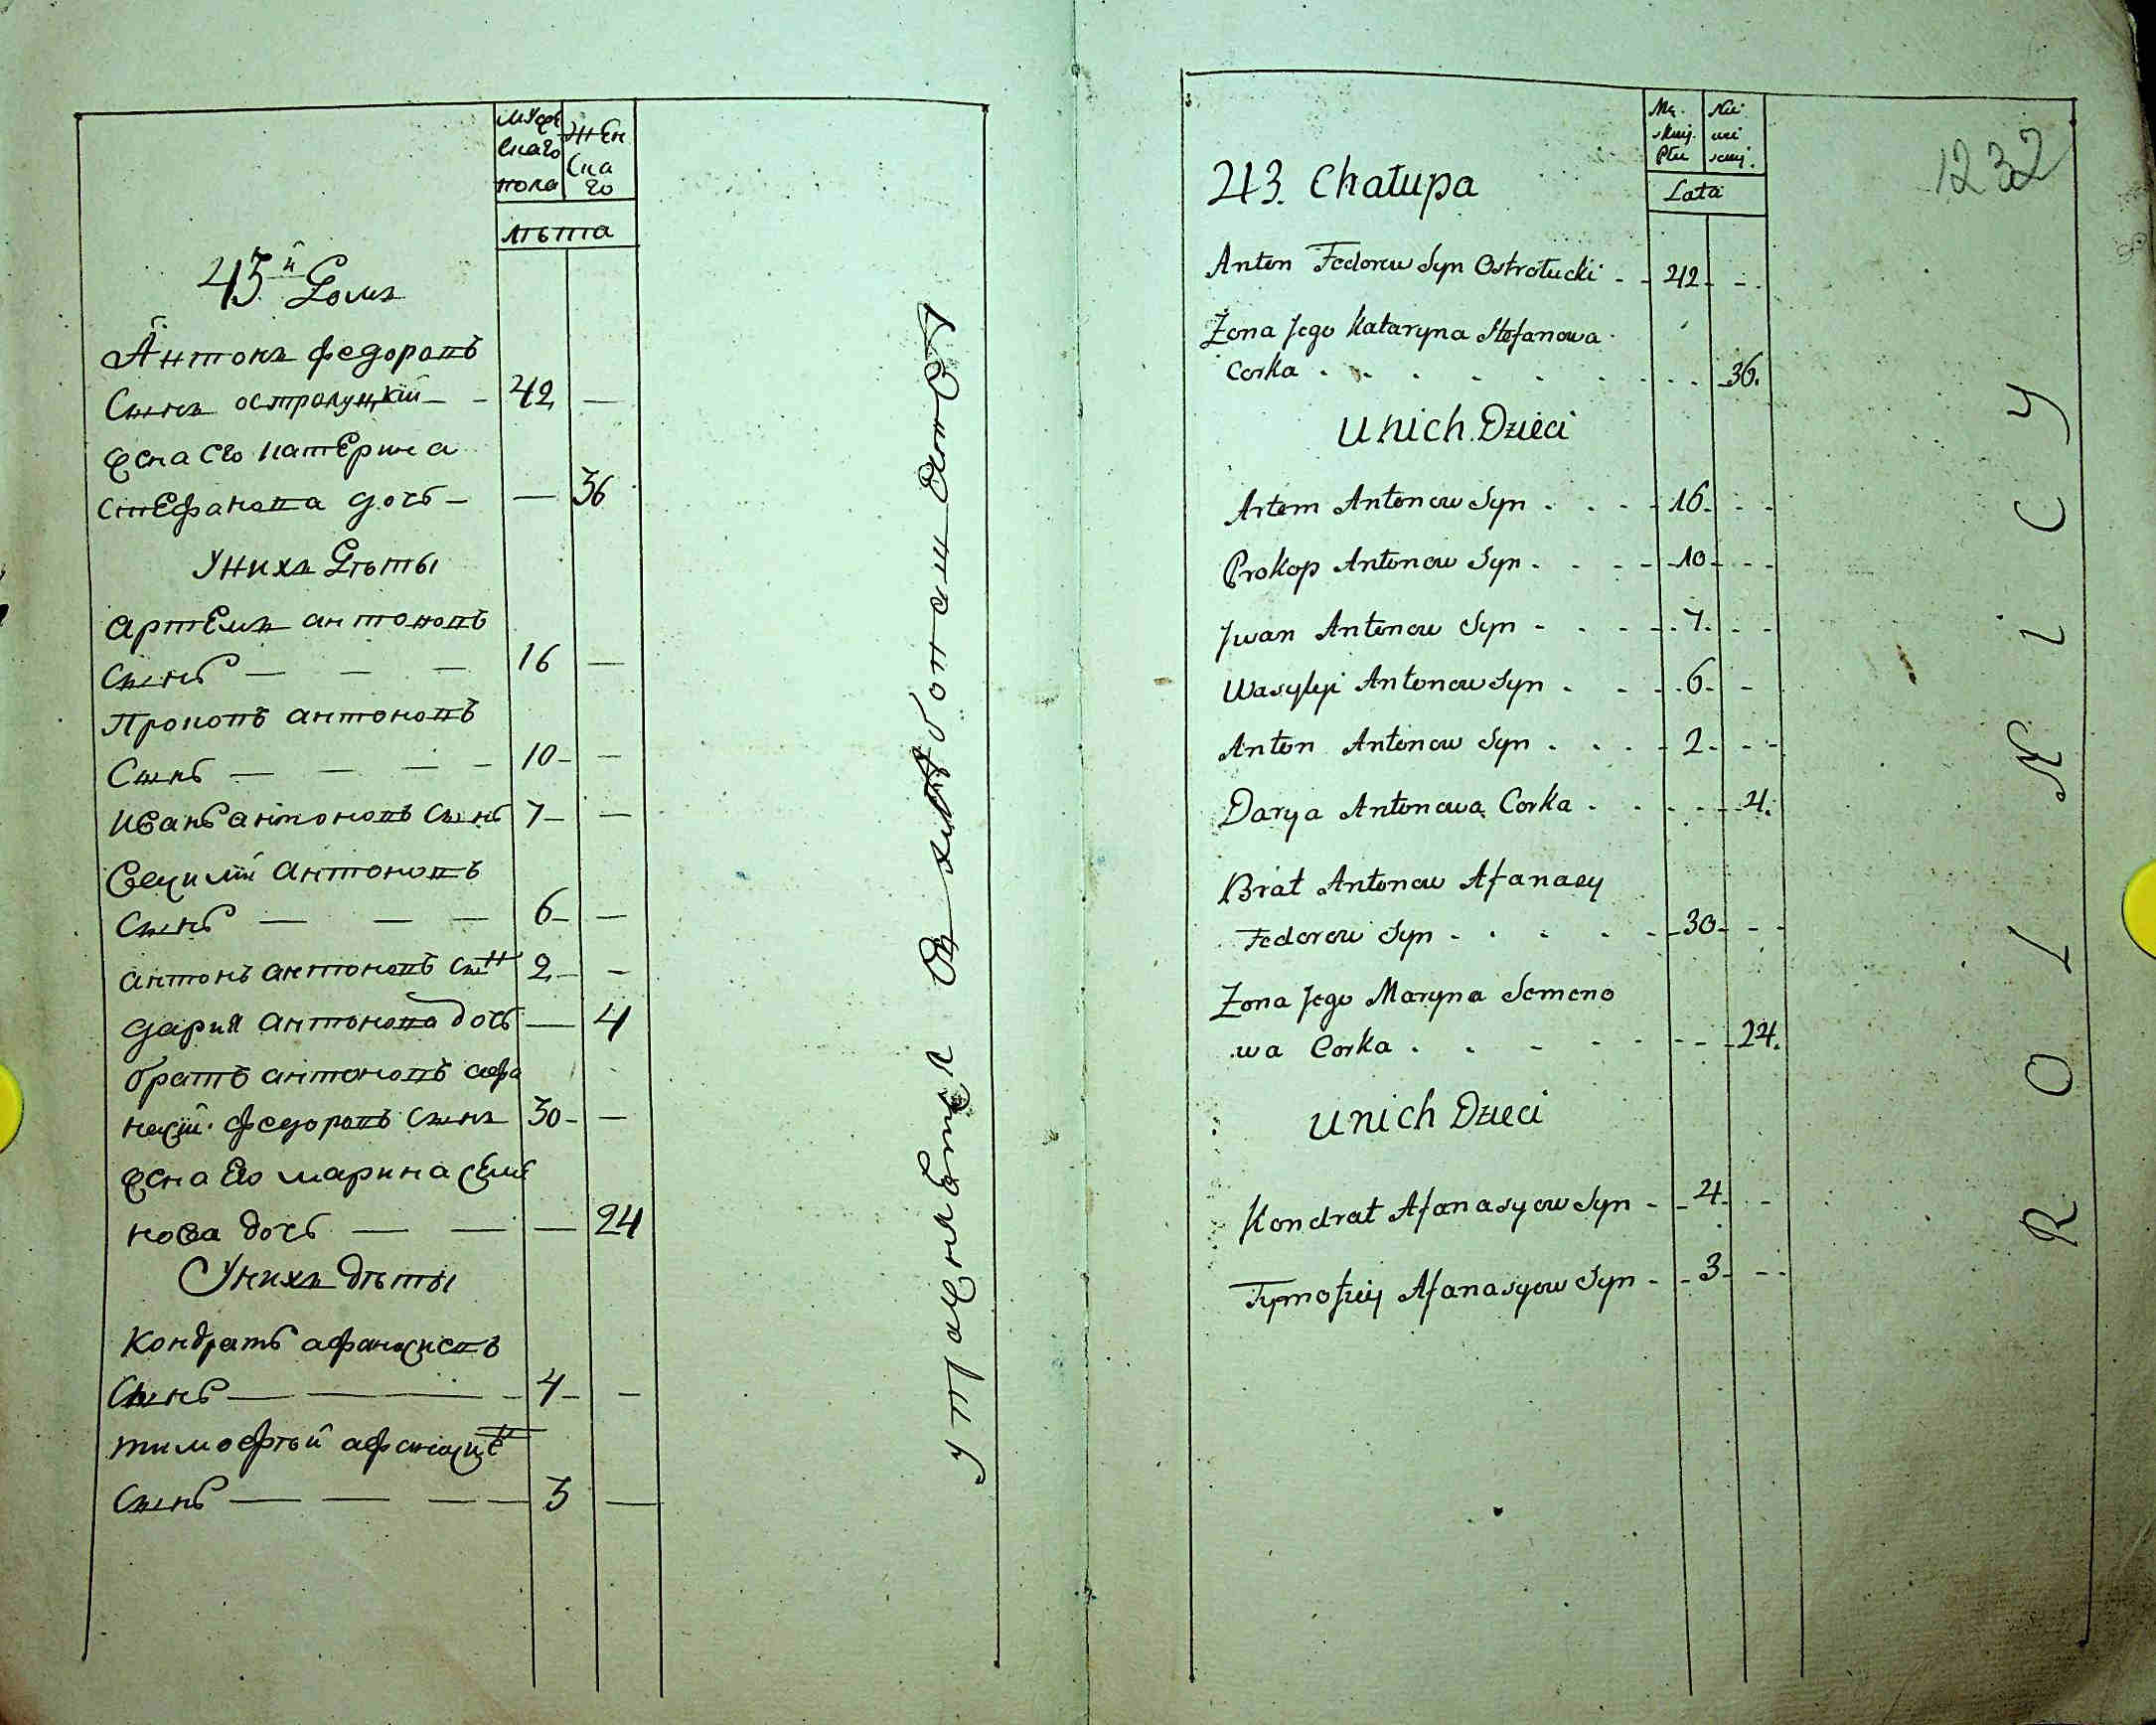 мужескаго пола
женскаго
лѣта
43й домъ
Антонъ федоровъ
Сынъ остролуцкій — — 42 —
жена его катерина
стефанова дочь — — 36
У нихъ дѣты
артемъ антоновъ
Сынъ — — — 16 —
Прокопъ антоновъ
Сынъ — — — — 10 — —
Иванъ антоновъ Сынъ 7 — —
Василій антоновъ
Сынъ — — — 6 — —
антонъ антоновъ сын 2 — —
дария антонова дочь — 4
братъ антоновъ афа
насій федоровъ Сынъ 30 — —
жена его марина семе
нова дочь — — — 24
У нихъ дѣты
Кондратъ афанасиевъ
Сынъ — — — 4 — —
тимофѣй афанасиев
Сынъ — — — — 3 —
Męskiej Płci
Niewieściej
Lata
43. Chałupa
1232
Anton Fedorow Syn Ostrołucki - - 42 - -
Żona Jego Kataryna Stefanowa
Corka . . . . . . . . . 36.
U nich Dzieci
Artem Antonow Syn . . . 16. . .
Prokop Antonow Syn . . . 10 - - -
Jwan Antonow Syn - . . 7. - -
Wasylyi Antonow Syn . . . 6. -
Anton Antonow Syn . . . 2. - -
Darya Antonowa Corka . . . . 4.
Brat Antonow Afanasy
Fedorow Syn - . . . . 30 - -
Żona Jego Maryna Semeno
wa Corka . . . . . . . 24.
U nich Dzieci
Kondrat Afanasyow Syn - - 4 - -
Tymofiey Afanasyow Syn - - 3 - -
R O L N i C Y